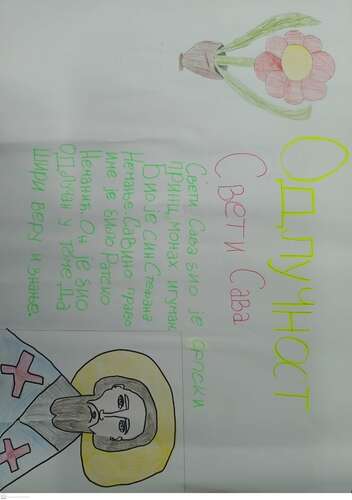 Одлучност
Свети Сава
Свети Сава био је српски
принц, монах, игуман
Био је син Стефана
Немање. Савино право
име је било Растко
Немањић. Он је био
одлучан у томе да
шири веру и знање.